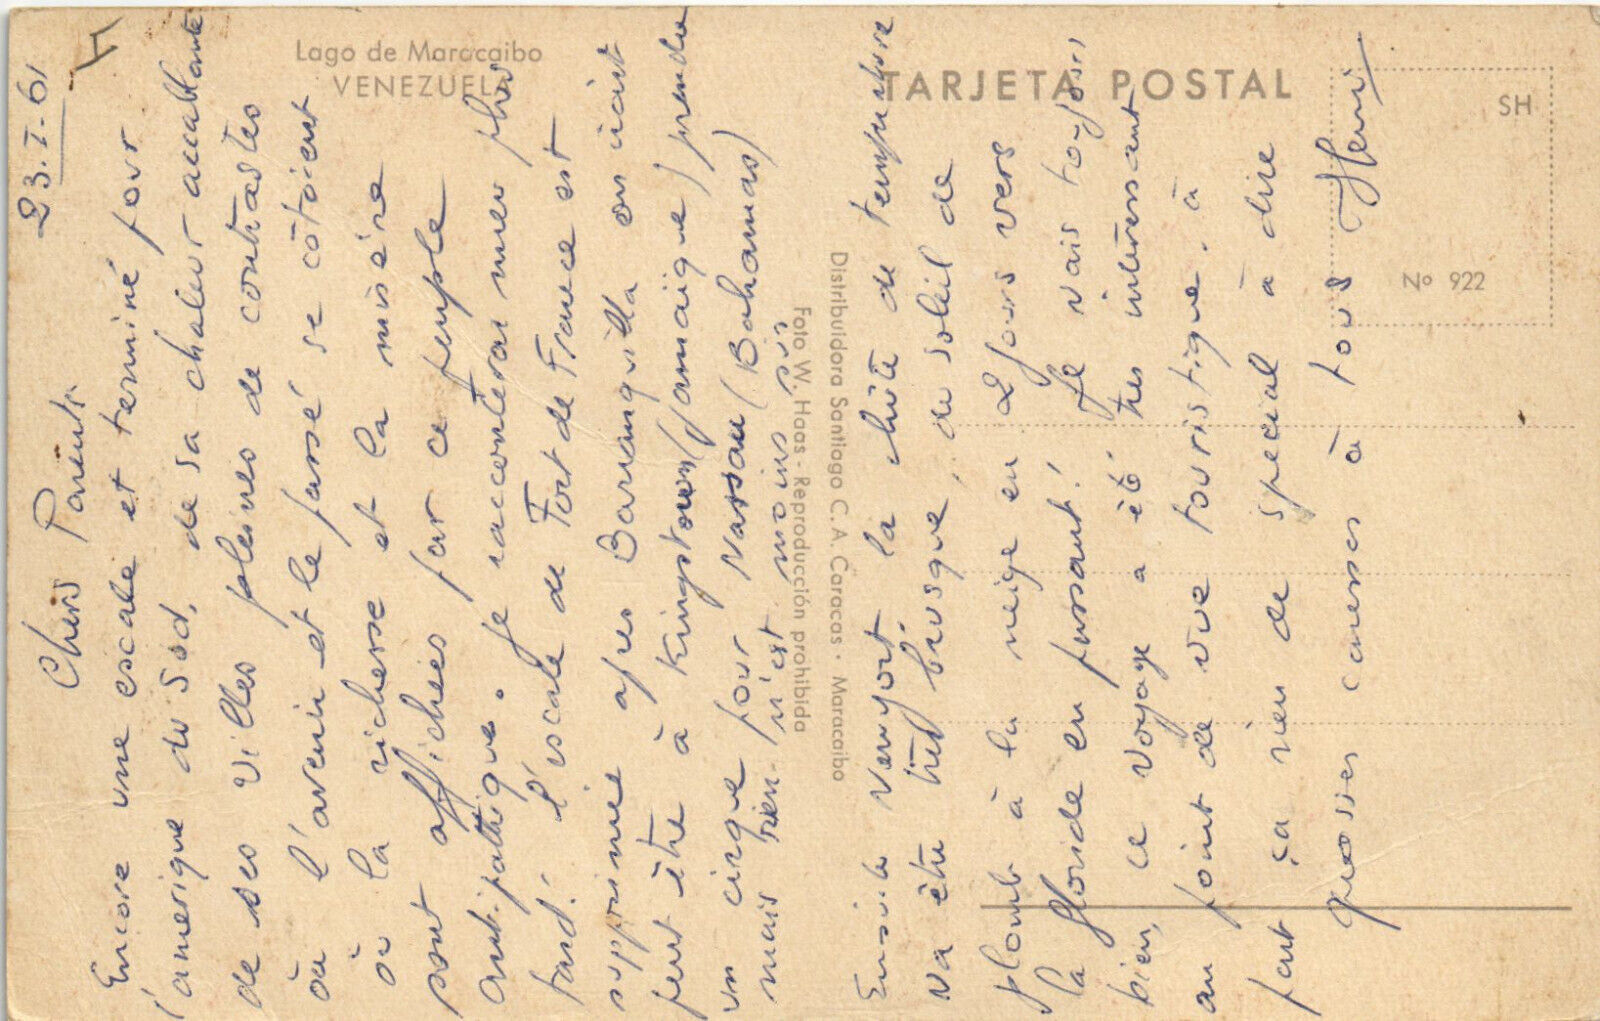 Lago de Maracaibo
VENEZUELA
TARJETA POSTAL
SH
Nº 922
Distribuidora Santiago C. A. Caracas - Maracaibo
Foto W. Haas - Reproducción prohibida
23.I.61
4
Chers Parents
Encore une escale et terminé pour
l'amerique du Sud, de sa chaleur accablante
de ses villes pleines de contrastes
où l'avenir et le passé se côtoient
où la richesse et la misère
sont affichées par ce peuple
antipathique. Je raconterai mieu plus
tard! l'escale de Fort de France est
supprimée apres Barranquilla on irait
peut être à Kingstown (Jamaique) prendre
un cirque pour Nassau (Bahamas)
mais rien n'est moins sur
Ensuite Newyork. la chûte de température
va être très brusque, du soleil de
plomb à la neige en 2 jours vers
la floride en passant! Je vais toujours
bien, ce voyage a été très interessant
au point de vue touristique. à
part ça rien de special à dire
grosses caresses à tous Henri